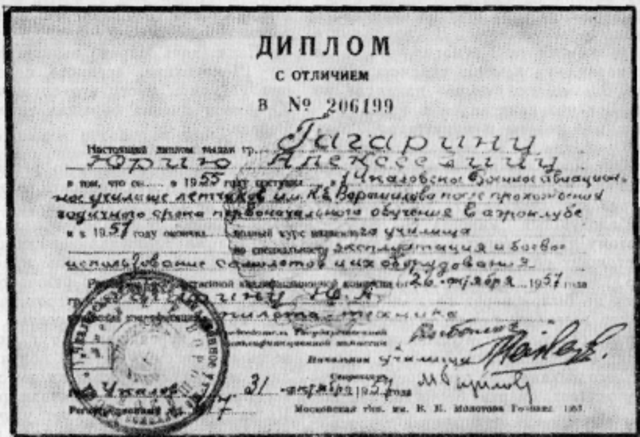 ДИПЛОМ
С ОТЛИЧИЕМ
В № 206199
Настоящий диплом выдан гр. Гагарину
Юрию Алексеевичу
в том, что он в 1955 году поступил в 1 Чкаловское Военное авиацион-
ное училище летчиков им. К.Е. Ворошилова после прохождения
годичного срока первоначального обучения в аэроклубе
и в 1957 году окончил полный курс названного училища
по специальности эксплуатация и боевое
использование самолетов и их оборудования
Решением Государственной квалификационной комиссии от 26 октября 1957 года
гр. Гагарину Ю. А.
пилота-техника
Председатель Государственной
квалификационной комиссии
Начальник училища
Секретарь
Чкалов 31 октября 1957 года
Регистрационный №
Московская тип. им. В. М. Молотова Гознака 195